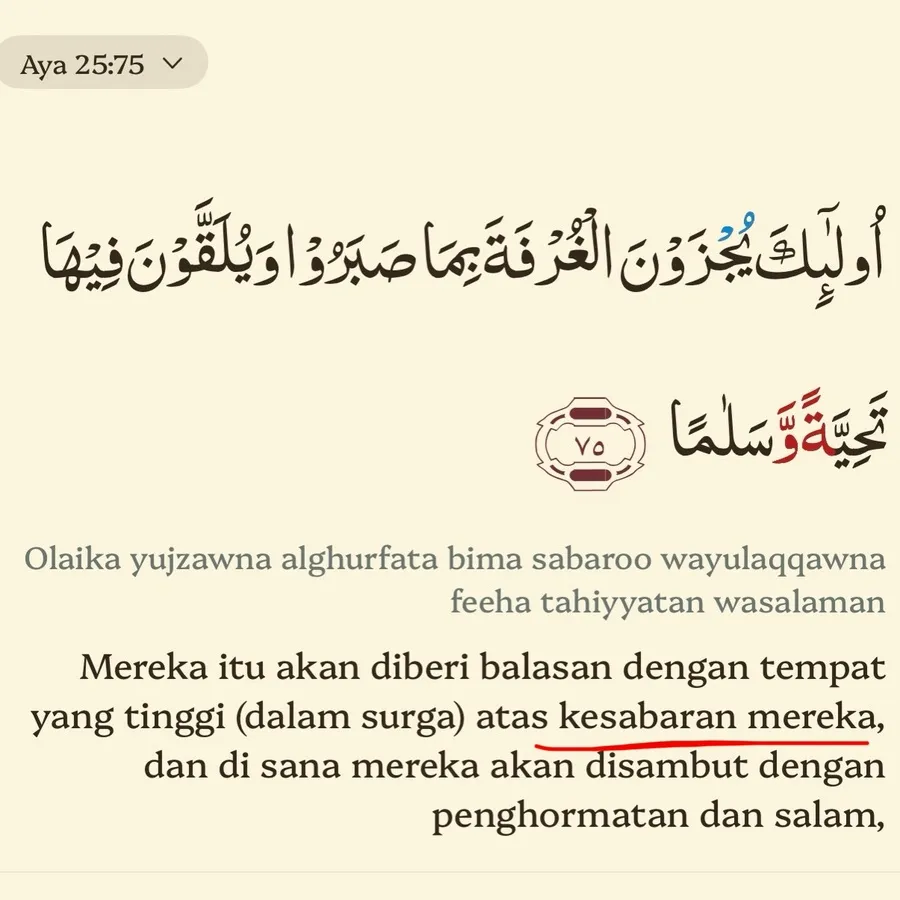 Aya 25:75
أُولٰٓئِكَ يُجْزَوْنَ الْغُرْفَةَ بِمَا صَبَرُوْا وَيُلَقَّوْنَ فِيْهَا
تَحِيَّةً وَّسَلٰمًا ٧٥
Olaika yujzawna alghurfata bima sabaroo wayulaqqawna
feeha tahiyyatan wasalaman
Mereka itu akan diberi balasan dengan tempat
yang tinggi (dalam surga) atas kesabaran mereka,
dan di sana mereka akan disambut dengan
penghormatan dan salam,